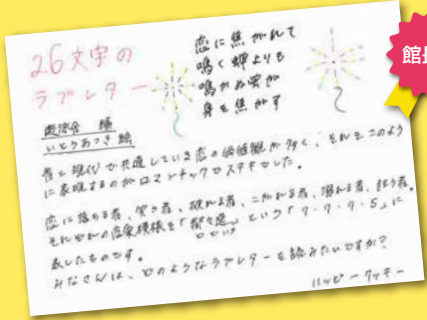 26文字の
ラブレター
恋に焦がれて
鳴く蝉よりも
鳴かぬ蛍が
身を焦がす
遊泳舎 編
いとうあつき 絵
昔と現代で共通している恋の価値観が多く、それをこのよう
に表現するのがロマンチックでステキでした。
恋に落ちる者、笑う者、破れる者、こがれる者、溺れる者、狂う者。
それぞれの恋愛模様を「都々逸」という「7・7・7・5」に
どどいつ
表したものです。
みなさんは、どのようなラブレターを読みたいですか?
ハッピークッキー
館長